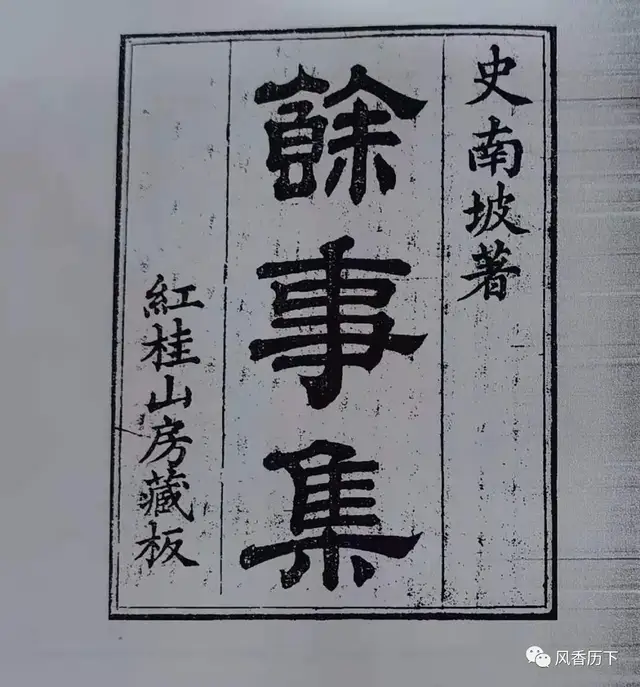 史南坡著
餘事集
紅桂山房藏板
风香历下